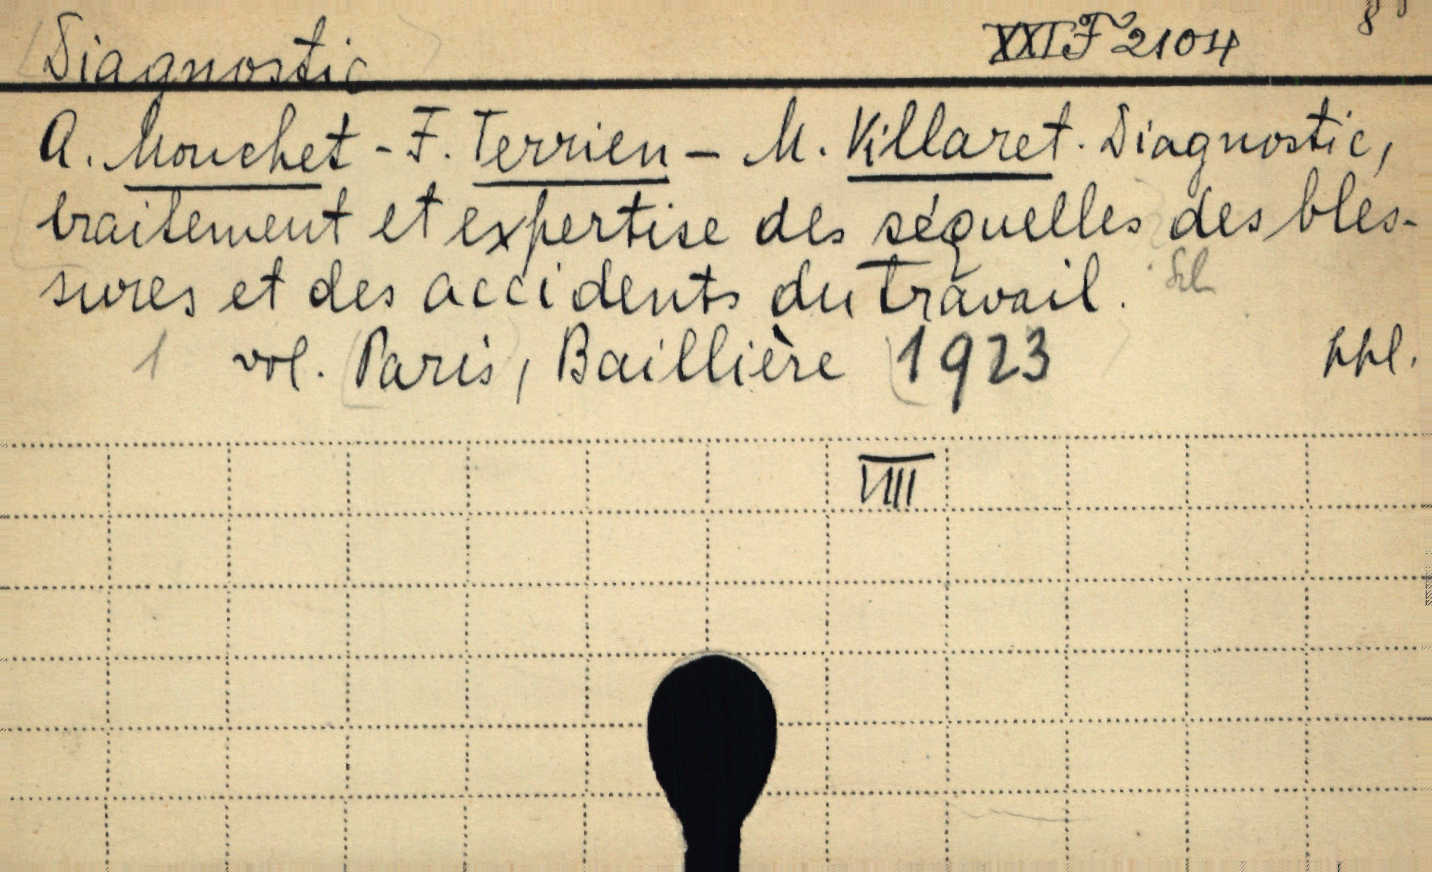 Diagnostic XXI F 2104 8°
A. Mouchet - F. Terrien - M. Villaret. Diagnostic,
traitement et expertise des séquelles des bles-
sures et des accidents du travail.
1 vol. Paris, Baillière 1923 ppl.
VIII